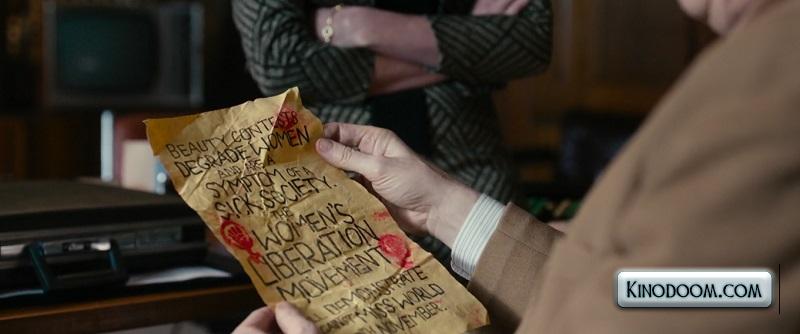 BEAUTY CONTESTS
DEGRADE WOMEN
AND ARE A
SYMPTOM OF A
SICK SOCIETY.
THE
WOMEN'S
LIBERATION
MOVEMENT
DEMONSTRATE
MISS WORLD
NOVEMBER.
KINODOOM.COM